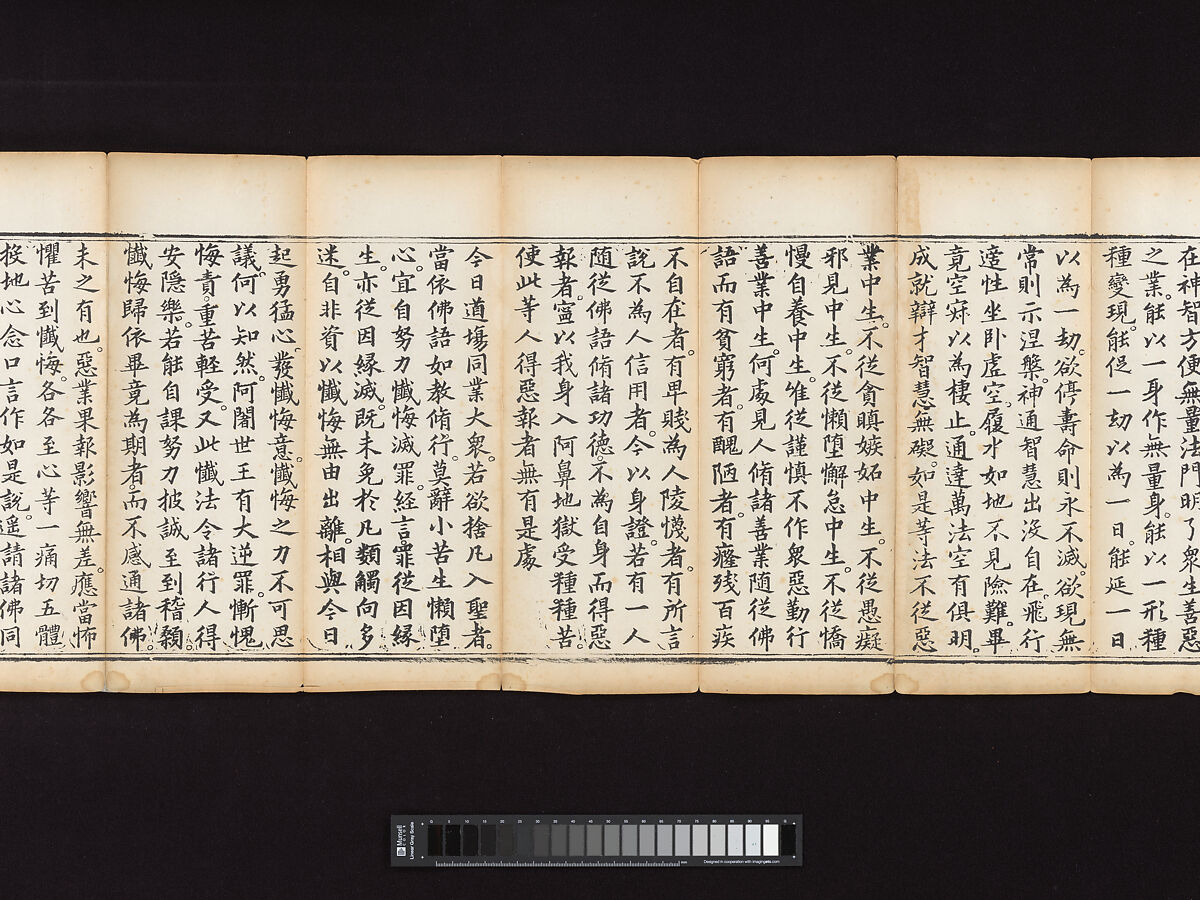 在神智方便無量法門明了衆生善惡
之業。能以一身作無量身。能以一形種
種變現。能促一劫以為一日。能延一日
以為一劫。欲停壽命則永不滅。欲現無
常則示涅槃。神通智慧出沒自在。飛行
適性坐卧虛空。履水如地不見險難。畢
竟空寂以為棲止。通達萬法空有俱明。
成就辯才智慧無礙。如是等法不從惡
業中生。不從貪瞋嫉妬中生。不從愚癡
邪見中生。不從懶墮懈怠中生。不從憍
慢自養中生。唯從謹慎不作衆惡勤行
善業中生。何處見人脩諸善業隨從佛
語而有貧窮者。有醜陋者。有癃殘百疾
不自在者。有卑賤為人陵懱者。有所言
說不為人信用者。今以身證。若有一人
隨從佛語脩諸功德不為自身而得惡
報者。寧以我身入阿鼻地獄受種種苦。
使此等人得惡報者無有是處
今日道塲同業大衆。若欲捨凡入聖者。
當依佛語如教脩行。莫辭小苦生懶墮
心。宜自努力懺悔滅罪。經言。罪從因緣
生。亦從因緣滅。既未免於凡類觸向多
迷。自非資以懺悔無由出離。相與今日
起勇猛心。發懺悔意。懺悔之力不可思
議。何以知然。阿闍世王有大逆罪。慚愧
悔責。重苦輕受。又此懺法令諸行人得
安隱樂。若能自課努力披誠至到稽顙。
懺悔歸依畢竟為期者。而不感通諸佛。
未之有也。惡業果報影響無差。應當怖
懼苦到懺悔。各各至心等一痛切五體
投地心念口言作如是說。遥請諸佛同
Munsell COLOR
Linear Gray Scale
0 5 10 15 20 25 30 35 40 45 50 55 60 65 70 75 80 85 90 95
mm
Designed in cooperation with imagingetc.com